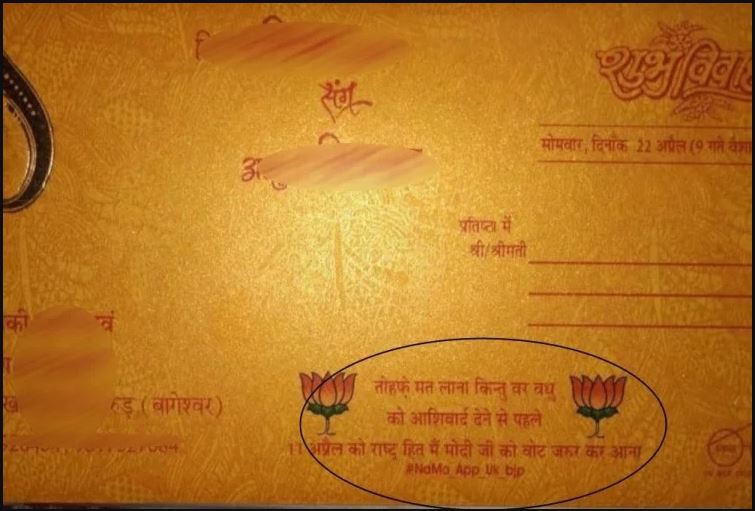 संग
शुभ विवा
सोमवार, दिनांक 22 अप्रैल (9 गते वैशा
प्रतिष्ठा में
श्री/श्रीमती
की
वं
ड़ (बागेश्वर)
तोहफे मत लाना किन्तु वर वधु
को आशिवार्द देने से पहले
11 अप्रैल को राष्ट्र हित मैं मोदी जी को वोट जरुर कर आना
#NaMo_App_Uk_bjp